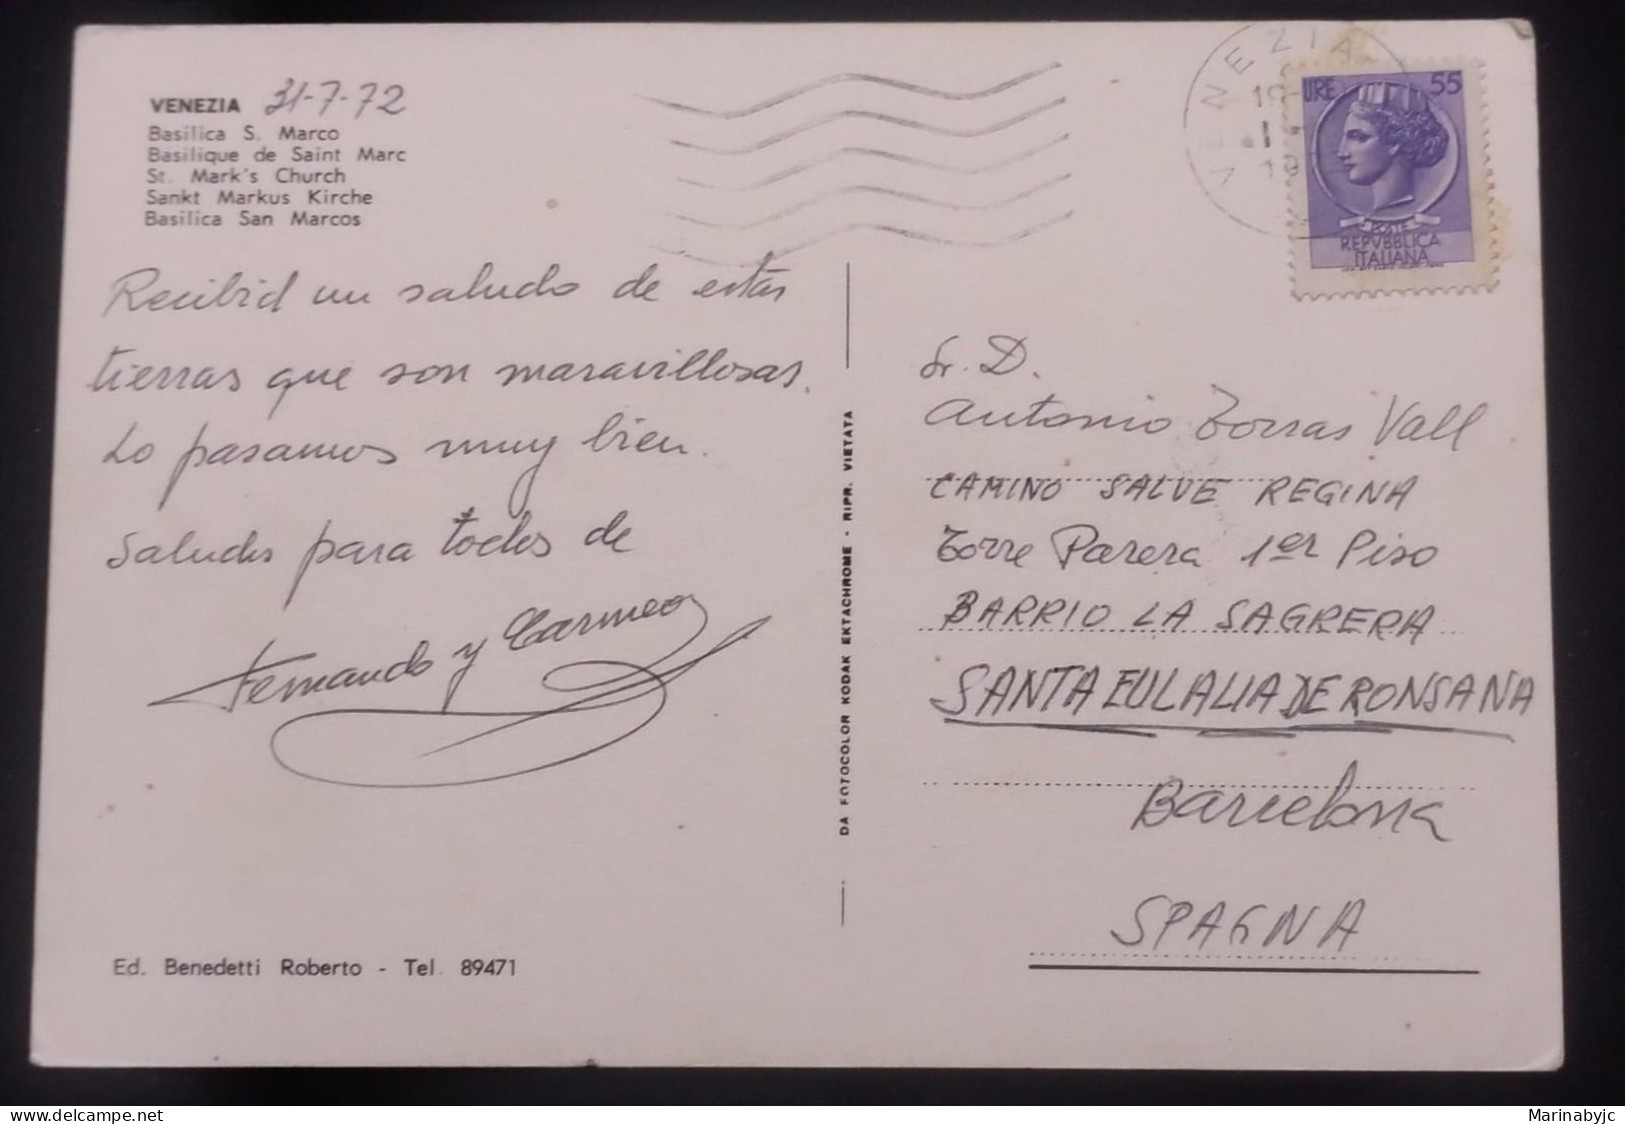 VENEZIA 31-7-72
Basilica S. Marco
Basilique de Saint Marc
St. Mark's Church
Sankt Markus Kirche
Basilica San Marcos
Recibid un saludo de estas
tierras que son maravillosas.
Lo pasamos muy bien.
Saludos para todos de
Fernando y Carmen
Ed. Benedetti Roberto - Tel. 89471
DA FOTOCOLOR KODAK EKTACHROME - RIPR. VIETATA
VENEZIA
LIRE 55
POSTE
REPVBBLICA
ITALIANA
Sr. D.
Antonio Torras Vall
CAMINO SALVE REGINA
Torre Parera 1er Piso
BARRIO LA SAGRERA
SANTA EULALIA DE RONSANA
Barcelona
SPAGNA
www.delcampe.net
Marinabyjc